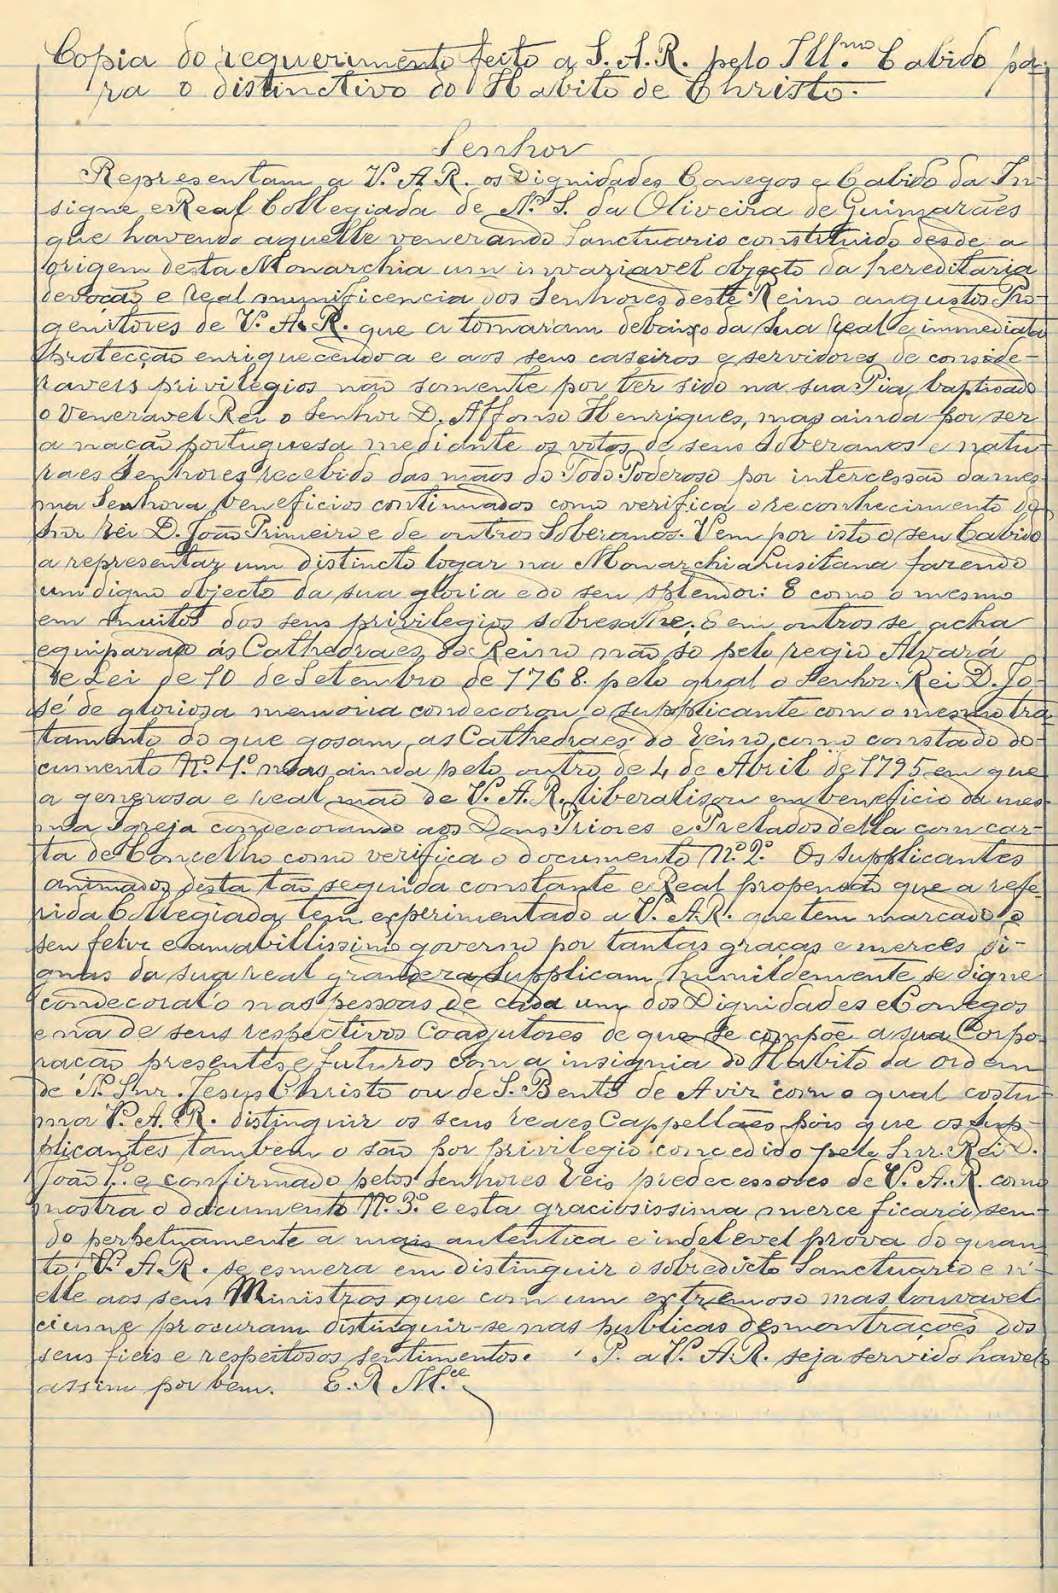 Copia do requerimento feito a S. A. R. pelo Ill.mo Cabido pa-
ra o distinctivo do Habito de Christo.
Senhor
Representam a V. A. R. os Dignidades Conegos e Cabido da In-
signe e Real Collegiada de N.ª S. da Oliveira de Guimarães
que havendo aquelle venerando Sanctuario constituido desde a
origem desta Monarchia um invariavel objecto da hereditaria
devoção e real munificencia dos Senhores deste Reino augustos Pro-
genitores de V. A. R. que a tomaram debaixo da Sua Real e immediata
Protecção enriquecendo a e aos seus caseiros e servidores de conside-
raveis privilegios não somente por ter sido na sua Pia baptisado
o Veneravel Rei o Senhor D. Affonso Henriques, mas ainda por ser
a nação portuguesa mediante os votos de seus Soberanos e natu-
raes Senhores recebido das mãos do Todo Poderoso por intercessão da mes-
ma Senhora beneficios continuados como verifica o reconhecimento do
Snr Rei D. João Primeiro e de outros Soberanos. Vem por isto o seu Cabido
a representar um distincto logar na Monarchia Lusitana fazendo
um digno objecto da sua gloria e do seu splendor: E como o mesmo
em muitos dos seus privilegios sobresahe, e em outros se acha
equiparado ás Cathedraes do Reino não só pelo regio Alvará
de Lei de 10 de Setembro de 1768. pelo qual o Senhor Rei D. Jo-
sé de gloriosa memoria condecorou o supplicante com o mesmo tra-
tamento do que gosam as Cathedraes do reino, como consta do do-
cumento N.º 1.º mas ainda pelo outro de 4 de Abril de 1795 em que
a generosa e real mão de V. A. R. liberalisou em beneficio da mes-
ma Igreja condecorando aos Dons Priores e Prelados della com car-
ta de Concelho como verifica o documento N.º 2.º Os Supplicantes
animados desta tão seguida constante e Real propensão que a refe-
rida Collegiada tem experimentado a V. A. R. que tem marcado o
seu feliz e amabilissimo governo por tantas graças e mercês di-
gnas da sua real grandeza Supplicam humildemente se digne
condecoral'o nas pessoas de cada um dos Dignidades e Conegos
e na de seus respectivos Coadjutores de que se compõe a sua Corpo-
ração presentes e futuros com a insignia do Habito da ordem
de N. Snr. Jesus Christo ou de S. Bento de Aviz com o qual costu-
ma V. A. R. distinguir os seus reaes Cappellães pois que os Sup-
plicantes tambem o são por privilegio concedido pelo Snr. Rei D.
João 1.º e confirmado pelos Senhores Reis predecessores de V. A. R. como
mostra o documento N.º 3.º e esta graciosissima merce ficará sen-
do perpetuamente a mais autentica e indelevel prova do quan-
to V. A. R. se esmera em distinguir o sobredicto Sanctuario e n'
elle aos seus Ministros que com um extremoso mas louvavel
ciume procuram distinguir-se nas publicas desmontrações dos
seus fieis e respeitosos sentimentos. P. a V. A. R. seja servido havel-o
assim por bem. E. R. M.ce